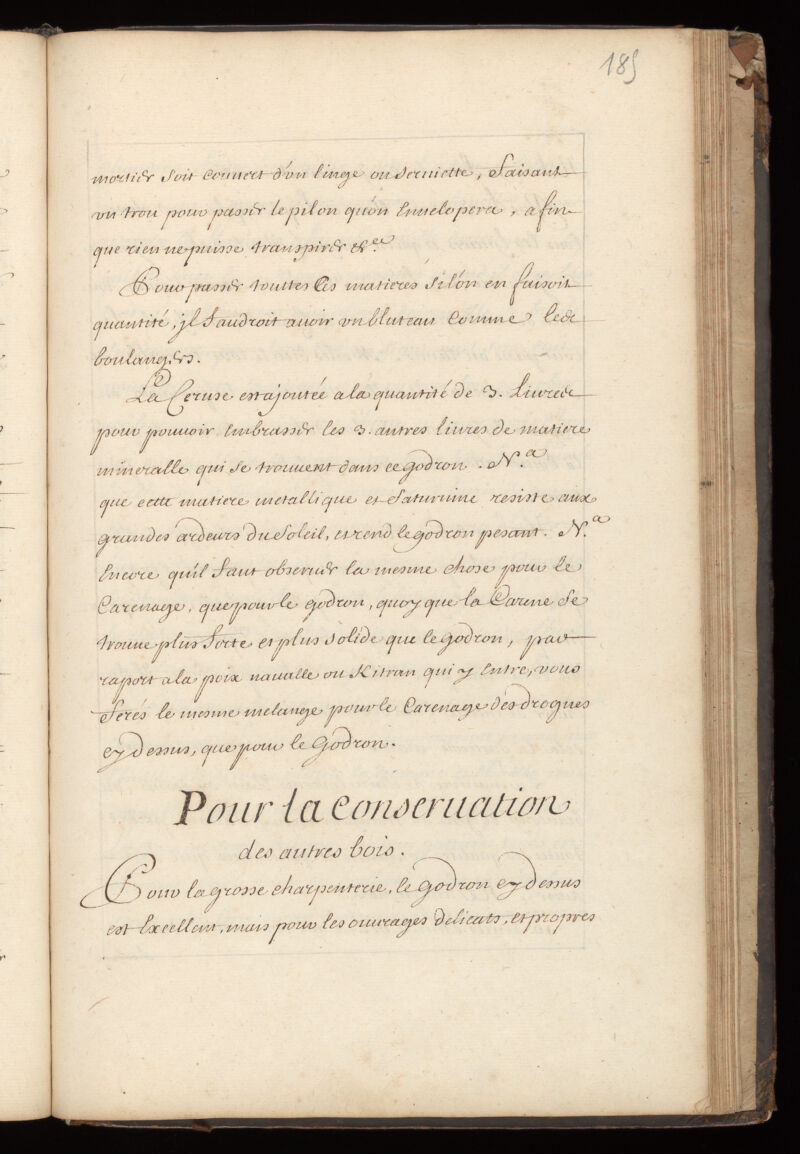 185
mortier soit couuert d'vn linge ou seruiette, faisant
vn trou pour passer le pilon qu'on enuelopera, afin
que rien ne puisse transpirer &c.ª
Pour passer touttes les matieres si l'on en faisoit
quantité, jl faudroit auoir vn bluteau comme les
boulangers.
La Ceruse est ajoutée a la quantité de 3. Liures
pour pouuoir embrasser les 3. autres liures de matiere
mineralle qui se trouuent dans ce godron. N.ª
que cette matiere metallique et saturnine resiste aux
grandes ardeurs du Soleil, et rend le godron pesant. N.ª
encore qu'il faut obseruer la mesme chose pour le
Carenage, que pour le godron, quoy que la Carene se
trouue plus forte et plus solide que le godron, par
raport a la poix naualle ou Kitran qui y entre, vous
ferés le mesme melange pour le Carenage des drogues
cy dessus, que pour le Godron.
Pour la conseruation
des autres bois.
Pour la grosse charpenterie, le Godron cy dessus
est excellent, mais pour les ouurages delicats, et propres